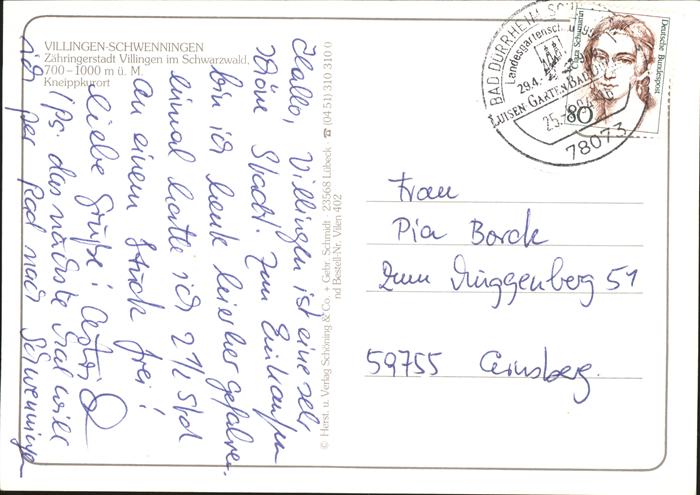 VILLINGEN-SCHWENNINGEN
Zähringerstadt Villingen im Schwarzwald,
700-1000 m ü. M.
Kneippkurort
Hallo, Villingen ist eine sehr
schöne Stadt! Zum Einkaufen
bin ich heute hierher gefahren.
einmal hatte ich 2 1/2 Std
an einem Stück frei!
Liebe Grüße! Astrid
Ps. das nächste Mal will
ich per Rad nach Schwenningen
© Herst. u. Verlag Schöning & Co. + Gebr. Schmidt · 23568 Lübeck · ☎ (04 51) 310 310 0
nd Bestell-Nr. Vilen 402
BAD DÜRRHEIM
Landesgartenschau
29.4.
LUISEN GARTEN BAD
25.
78073
Clara Schumann
Deutsche Bundespost
80
Frau
Pia Borck
Zum Müggenberg 51
59755 Arnsberg.